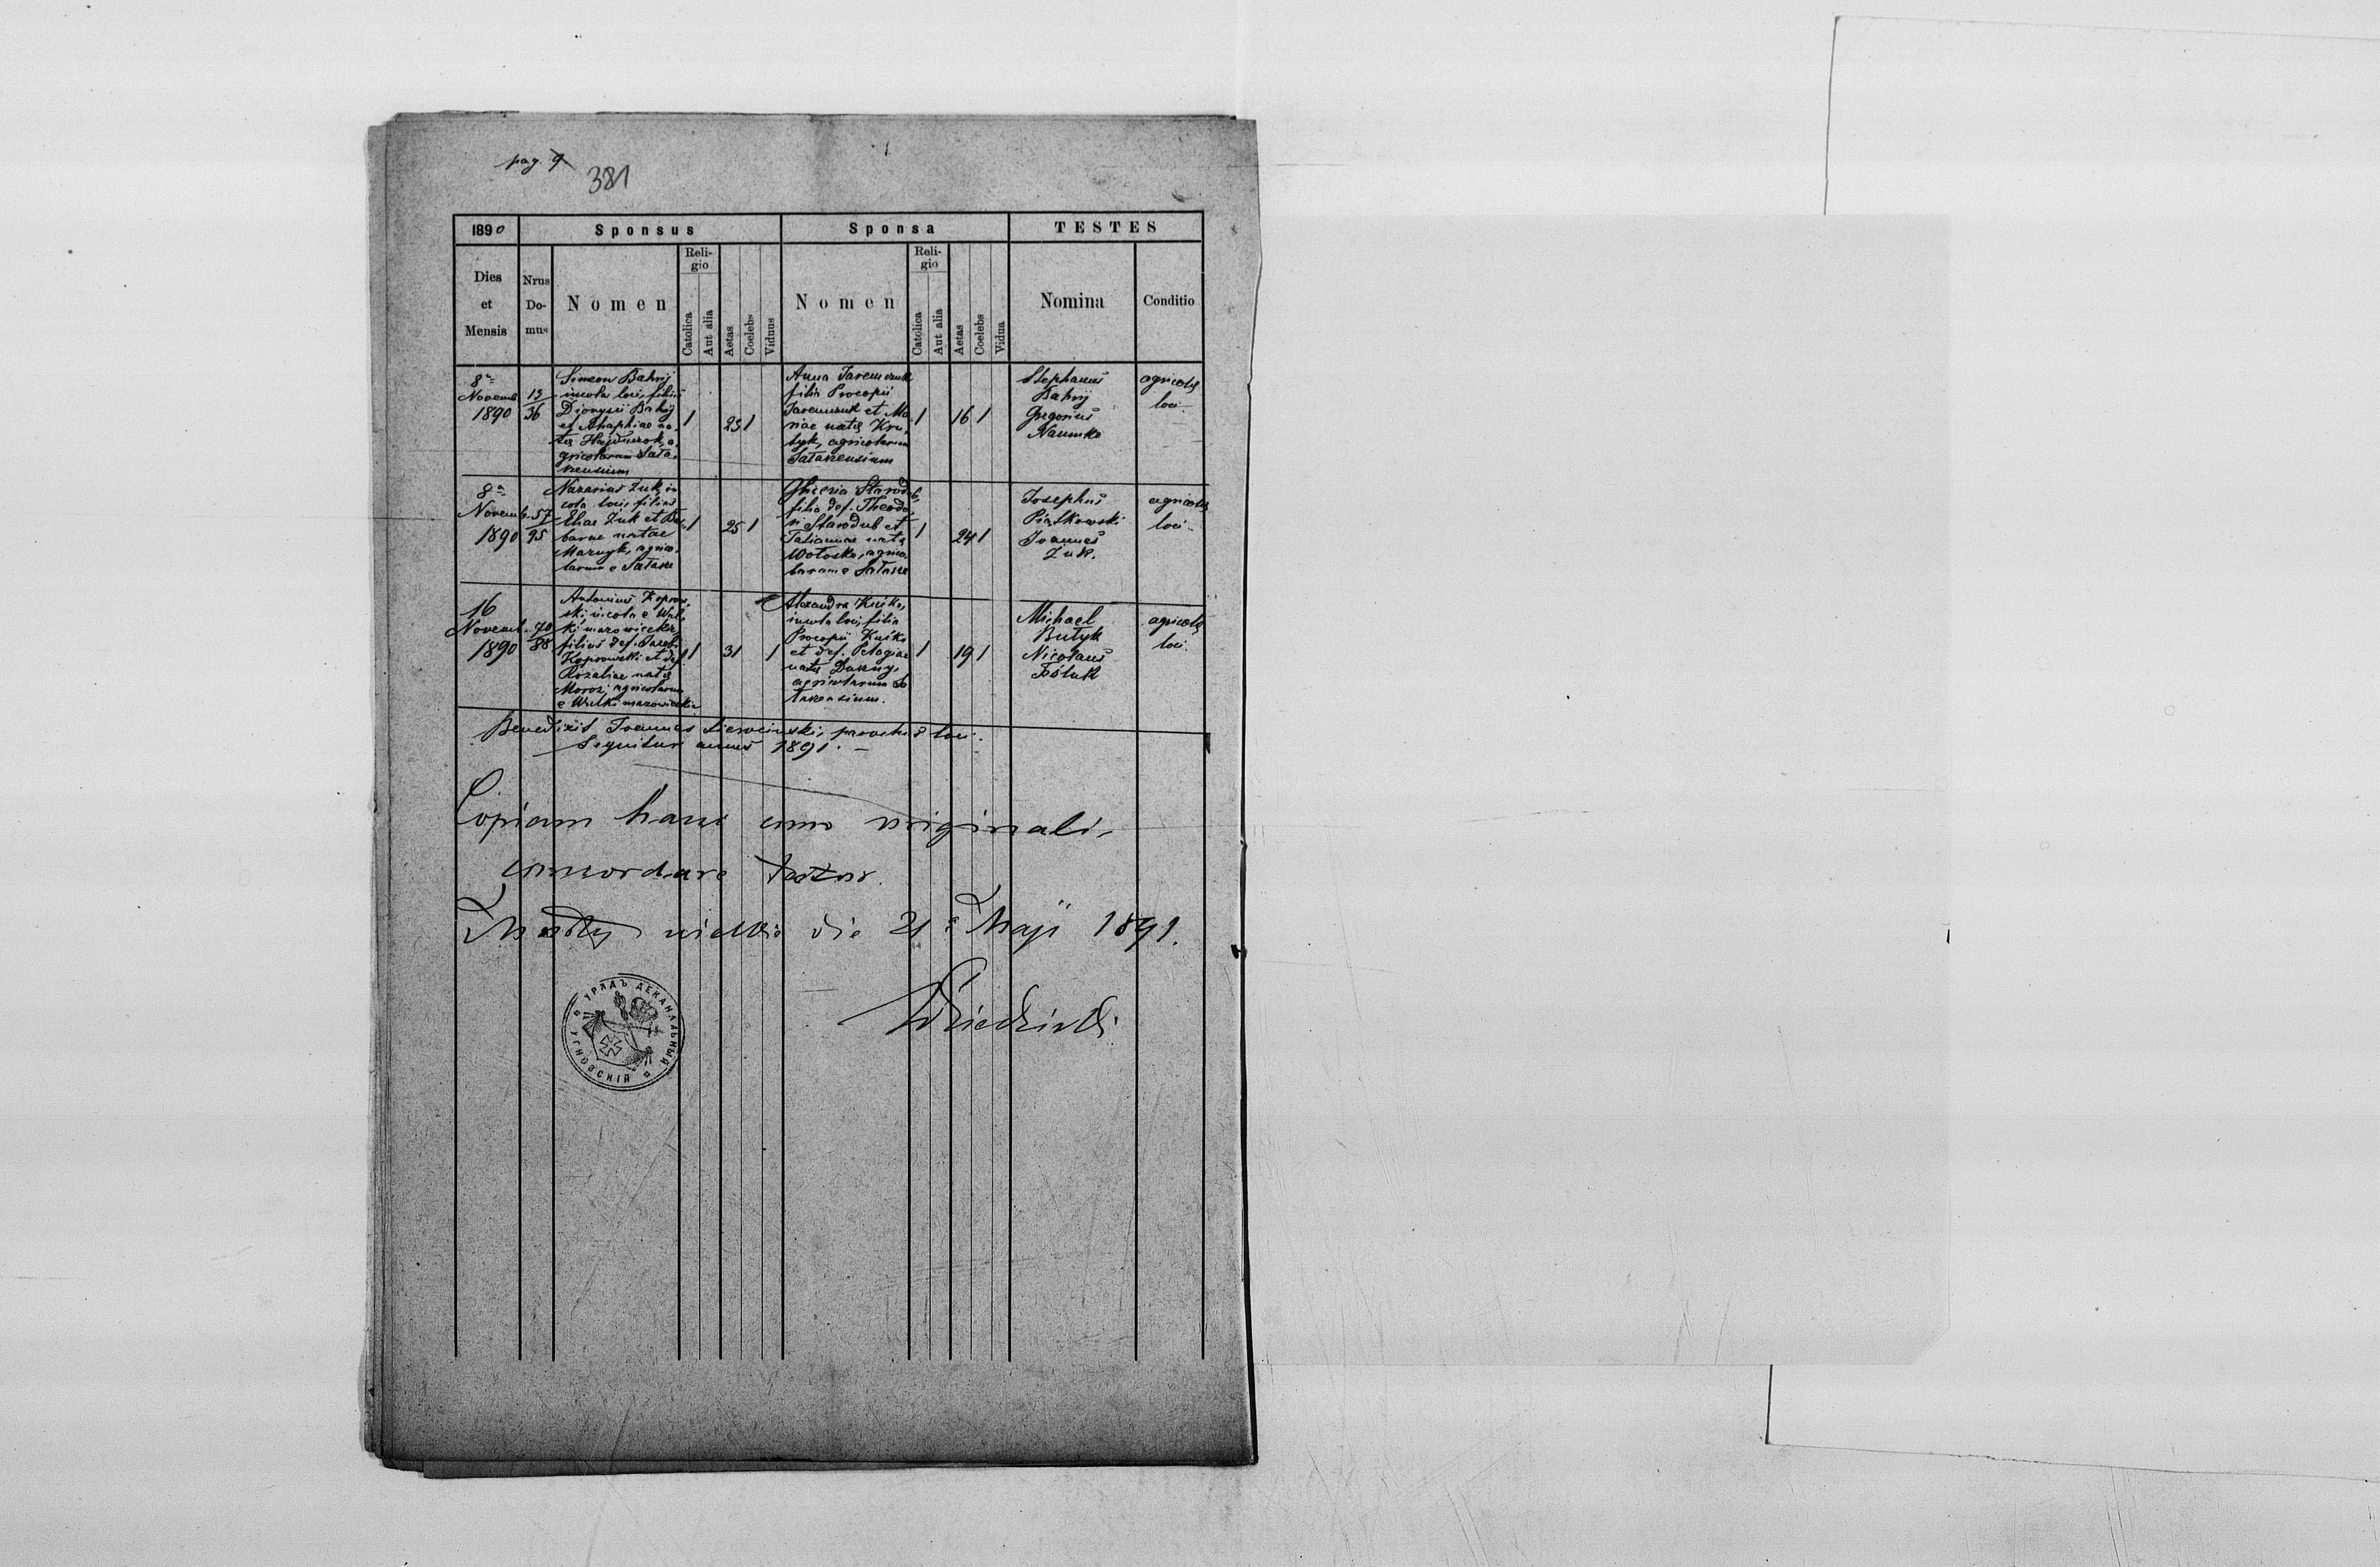 pag. 9
381
1890 Sponsus Sponsa TESTES
Dies et Mensis
Nrus Domus
Nomen
Religio
Catolica
Aut alia
Aetas
Coelebs
Viduus
Nomen
Religio
Catolica
Aut alia
Aetas
Coelebs
Vidua
Nomina
Conditio
8a
Novemb
1890
13
36
Simeon Bahrij
incola loci, filius
Dionysii Bahrij
et Ahaphiae na-
tae
gricolarum Sata-
nensium
1
23
1
Anna Jaremczuk
filia Procopii
Jaremczuk et Ma-
riae natae Kru-
tyk, agricolarum
1
16
1
Stephanus
Bahrij
Gregorius
Naumko
agricolae
loci
8a
Novemb.
1890
57
95
Nazarius Zuk in-
cola loci, filius
Eliae Zuk et Bar-
barae natae
Mazuryk, agrico-
larum e
1
25
1
Starodub,
filia def. Theodo-
ri Starodub et
Tatiannae natae
agrico-
larum e
1
24
1
Josephus
Piatkowski
Joannes
Zuk.
agricolae
loci
16
Novemb.
1890
70
88
Antonius Koprow-
ski incola e Wul-
ki mazowieckie
filius def. Jacobi
Koprowski et def.
Rozaliae natae
Moroz, agricolarum
e Wulki mazowieckie
1
31
1
Alexandra Kuśko,
incola loci, filia
Procopii Kuśko
et def. Pelagiae
natae
agricolarum
1
19
1
Michael
Butyk
Nicolaus
agricolae
loci
Benedixit Joannes parochus loci.
Sequitur annus 1891. —
Copiam hanc cum originali
concordare testor.
die 21a Maji 1891.
УРЯДЪ ДЕКАНАЛЬНЫЙ УГНОВСКІЙ